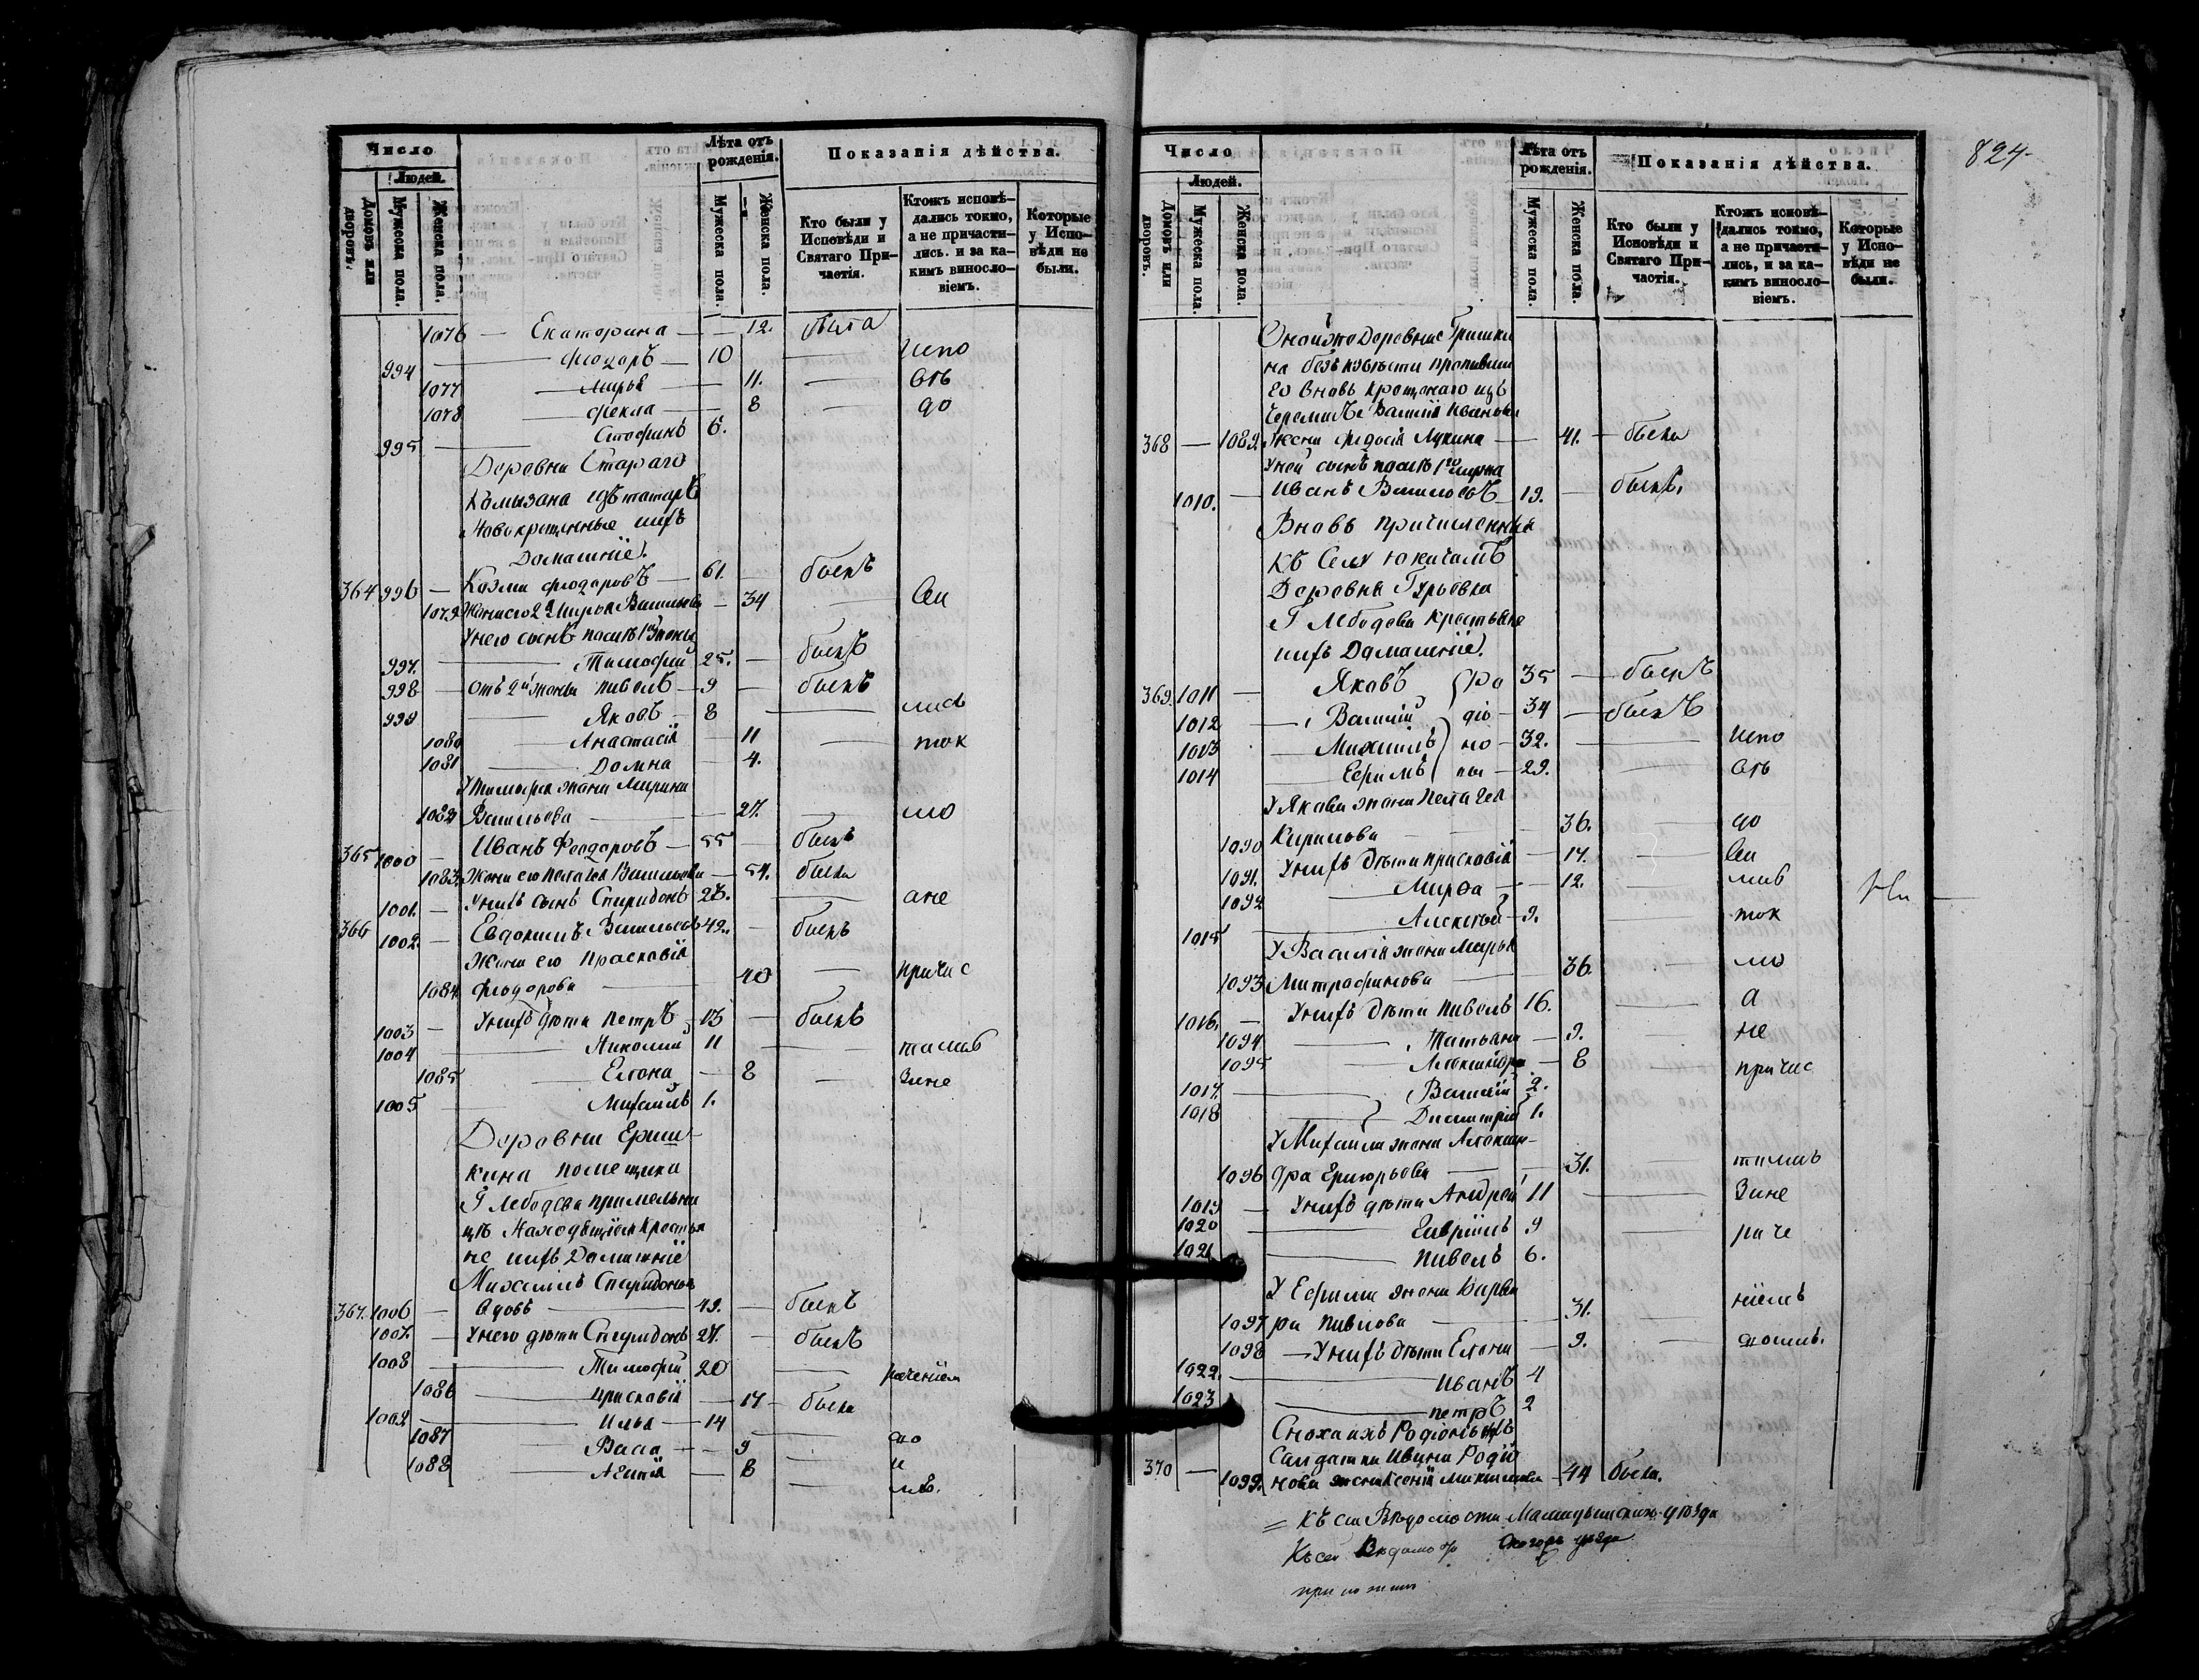 Число
Людей.
Домовъ или дворовъ.
Мужеска пола.
Женска пола.
Лѣта отъ рожденія.
Мужеска пола.
Женска пола.
Показанія дѣйства.
Кто были у Исповѣди и Святаго Причастія.
Ктожъ исповѣдались токмо, а не причастились. и за какимъ винословіемъ.
Которые у Исповѣди не были.
1076 — Екатерина — 12. была
994 — Феодоръ — 10 — испо
1077 — Марья — 11. — вѣ
1078 — Фекла — 8 — до
995 — Стефанъ 6.
Деревни Стараго
Камызана изъ татаръ
Новокрещенные ихъ
Домашніе.
364 996 — Козма Феодоровъ — 61. — былъ
1079 Жена его 2я Марья Васильева — 34 — ва
У него сынъ послѣ 1й жены
997. — Тимофей 25. — былъ
998 — отъ 2й жены Павелъ — 9 — былъ
999 — Яковъ — 8 — лись
1080 — Анастасія — 11 — ток
1081 — Домна — 4.
У Тимофея жена Марина
1082 Васильева — 27. — мо
365 1000 — Иванъ Феодоровъ — 55 — былъ
1083. Жена его Пелагея Васильева — 54. была
1001. — У нихъ сынъ Спиридонъ 23. — ане
366 1002 — Евдокимъ Васильевъ 42. — былъ
Жена его Прасковія
1084 Феодорова — 40 — причас
1003 — У нихъ дѣти Петръ — 13 — былъ
1004 — Николай 11 — тилив
1085 — Елена — 8 — Зане
1005 — Михаилъ 1.
Деревни Ериш-
кина помещика
Г Лебедева при мельни
цѣ Находящіеся крестья
не ихъ Домашніе
Михаилъ Спиридоновъ
367. 1006 — вдовъ — 49. — былъ
1007. — У него дѣти Спиридонъ 27. — былъ
1008 — Тимофей 20 — раченіем
1086 — Прасковія — 17 — была
1002 — Илья — 14
1087 — Васса — 9 — до
1088 — Агапія — 8 — и
лѣ.
824
Число
Людей.
Домовъ или дворовъ.
Мужеска пола.
Женска пола.
Лѣта отъ рожденія.
Мужеска пола.
Женска пола.
Показанія дѣйства.
Кто были у Исповѣди и Святаго Причастія.
Ктожъ исповѣдались токмо, а не причастились, и за какимъ винословіемъ.
Которые у Исповѣди не были.
Оной же Деревни Гришки
на безъ извѣсти пропавша
го вновь крещенаго изъ
Черемисъ Василія Иванова
368 — 1089. Жена Федосія Лукина — 41. — была
У ней сынъ послѣ 1го мужа
1010. — Иванъ Васильевъ 19. — былъ.
Вновь причисленныя
къ Селу Юкачамъ
Деревня Гурьевка
Г Лебедева крестьяне
ихъ Домашніе.
369. 1011 — Яковъ Ро 35 — былъ
1012 — Василій діо — 34 — былъ
1013 — Михаилъ но — 32. — испо
1014 — Ефимъ вы — 29. — вѣ
У Якова жена Пелагея
1090 Кирилова — 36. — до
1091. У нихъ дѣти Праскавія — 17. — ва
1092 — Марфа — 12. — лив
1015 — Алексѣй — 9. — ток
У Василія жена Марья
1093 Митрофанова — 36. — мо
1016. — У нихъ дѣти Павелъ 16. — а
1094 — Татьяна — 9. — не
1095 — Александра — 8 — причас
1017. — Василій 2.
1018 — Димитрій 1.
У Михаила жена Алексан-
1096 дра Григорьева — 31. — тилив
1019 — У нихъ дѣти Андрей 11 — Зане
1020 — Гавріилъ 9 — раче
1021 — Павелъ 6.
У Ефима жена Варва
1097 ра Павлова — 31. — ніемъ
1098 — У нихъ дѣти Елена — 9.
1022. — Иванъ 4
1023 — Петръ 2
Сноха ихъ Родіоновыхъ
Салдатка Ивана Родіо
370 — 1099. нова жена Ксенія — 44 была.
= Къ сей Вѣдомости Мамадышскаго уѣзда
Къ сей Вѣдомости